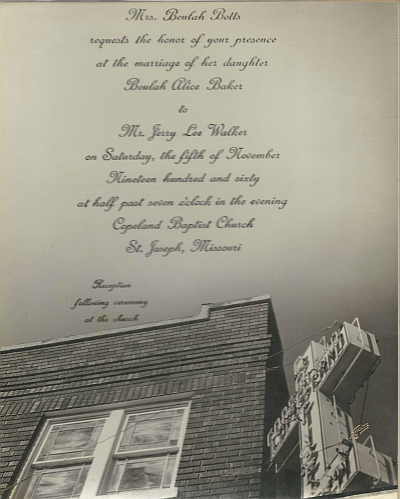 Mrs. Beulah Botts
requests the honor of your presence
at the marriage of her daughter
Beulah Alice Baker
to
Mr. Jerry Lee Walker
on Saturday, the fifth of November
Nineteen hundred and sixty
at half past seven o'clock in the evening
Copeland Baptist Church
St. Joseph, Missouri
Reception
following ceremony
at the church
COPELAND